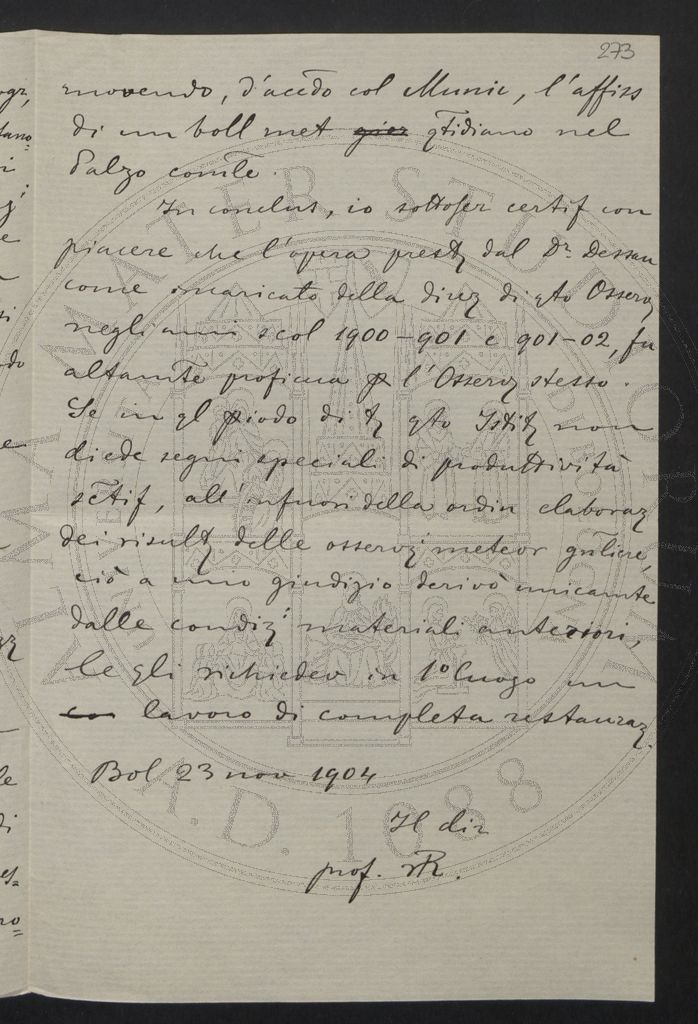 273
movendo, d'accdo col Munic, l'affiss
di un boll met gior qtidiano nel
Palzo comle.
In conclus, io sottoscr certif con
piacere che l'opera prestz dal Dr. Dessau
come incaricato della direz di qto Osserv
negli anni scol 1900-901 e 901-02, fu
altamte proficua p l'Osserv stesso.
Se in ql piodo di tz qto Istitz non
diede segni speciali di produttività
sctif, all'infuori della ordin elaboraz
dei risultz delle osservzi meteor gnliere,
ciò a mio giudizio derivò unicamte
dalle condizi materiali anteriori,
le gli richiedev in 1º luogo un
lavoro di completa restauraz.
Bol 23 nov 1904
Il dir
prof. MR.
ALMA MATER STUDIORUM
A.D. 1088